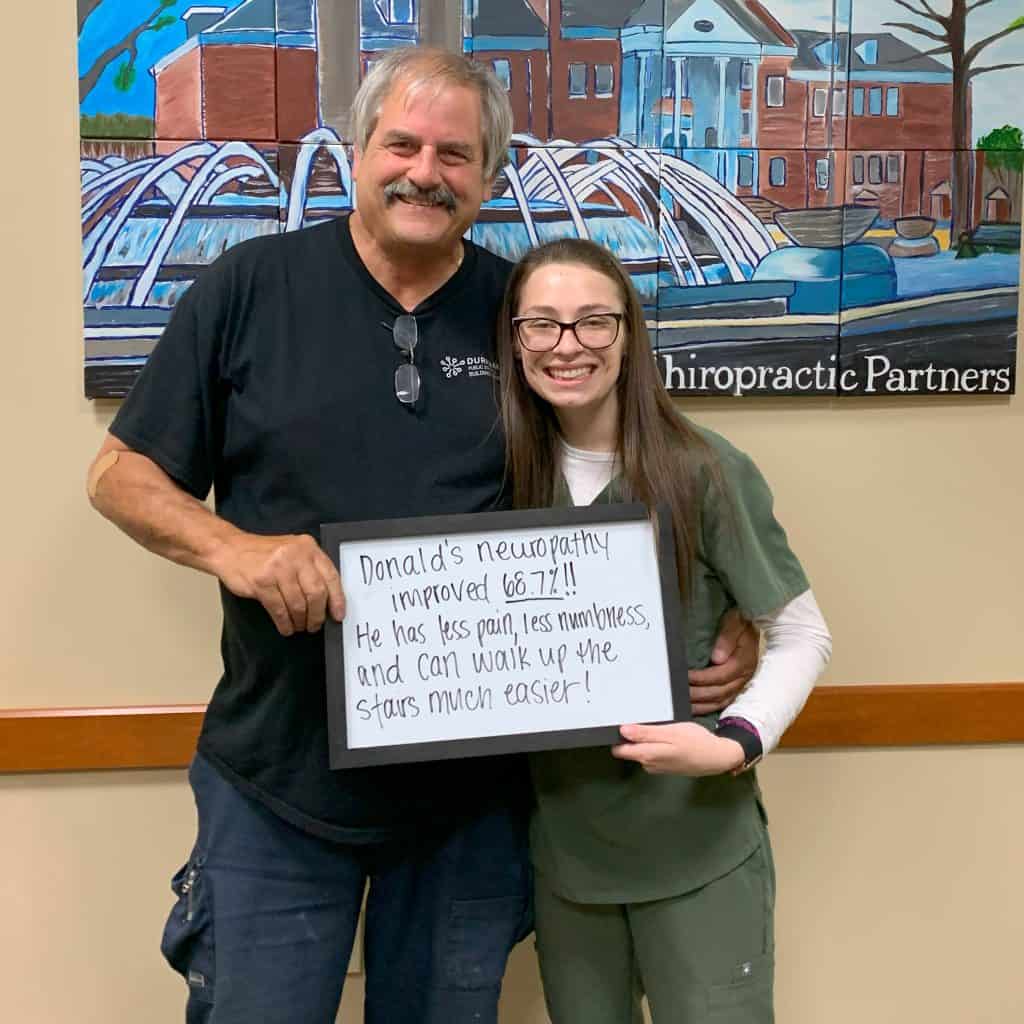 Chiropractic Partners
Donald's neuropathy
improved 68.7%!!
He has less pain, less numbness,
and can walk up the
stairs much easier!